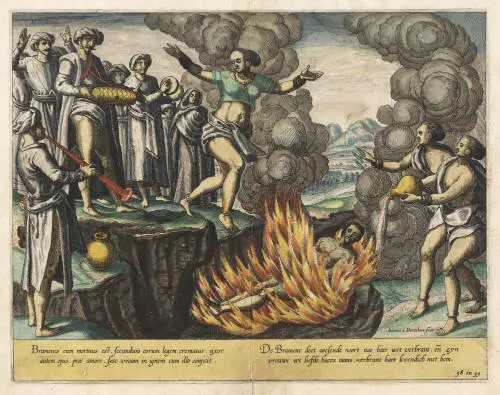 Bramenes cum mortuus est, secundum eorum legem crematur, uxor
autem ejus, præ amore, sese vivam in ignem cum illo conjicit.
De Bramene doot wesende wert nae haer wet verbrant, en zyn
vrouwe uyt liefde haers mans, verbrant haer levendich met hem.
Ioannes à Doetechum fecit
58 en 59